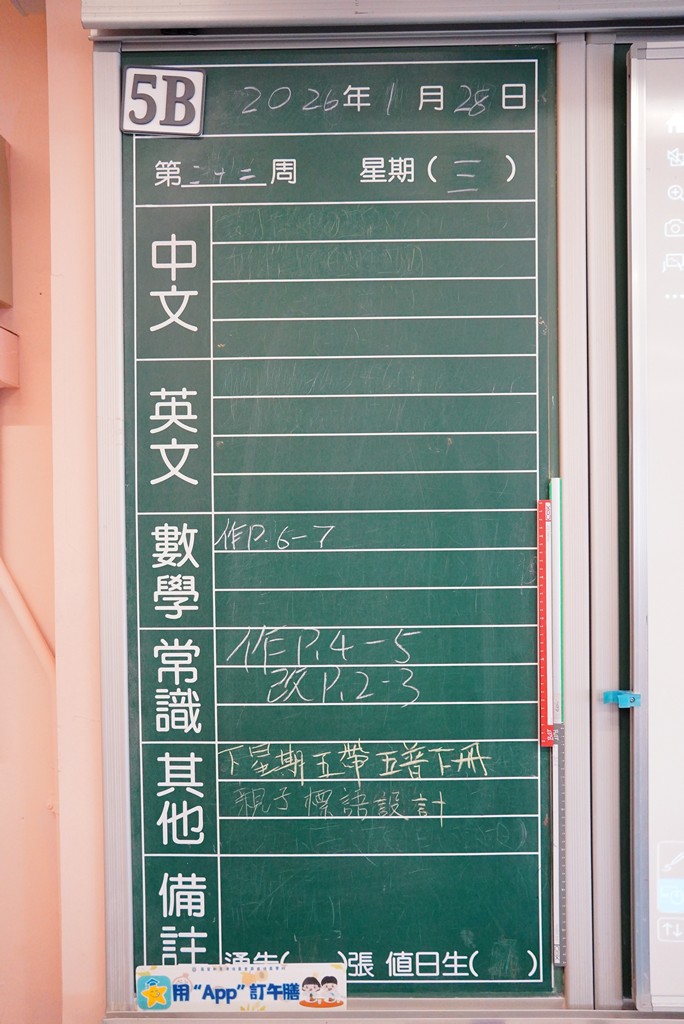 5B
2026年1月28日
第二十二周 星期(三)
中文
英文
數學
作P.6-7
常識
作P.4-5
改P.2-3
其他
下星期五帶五普下冊
親子標語設計
備註
通告( )張 值日生( )
用“App”訂午膳